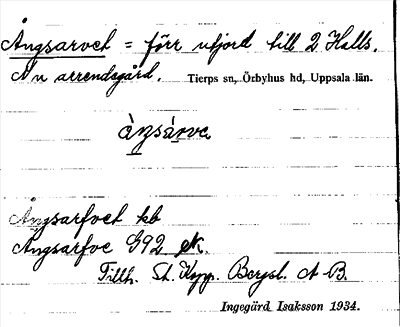 Ängsarvet = förr utjord till 2 Halls.
Nu arrendsgård. Tierps sn, Örbyhus hd, Uppsala län.
àŋsárve
Ängsarfvet kb
Ängsarfve G92
Tillh. St. Kopp. Bergsl. A B.
Ingegärd Isaksson 1934.